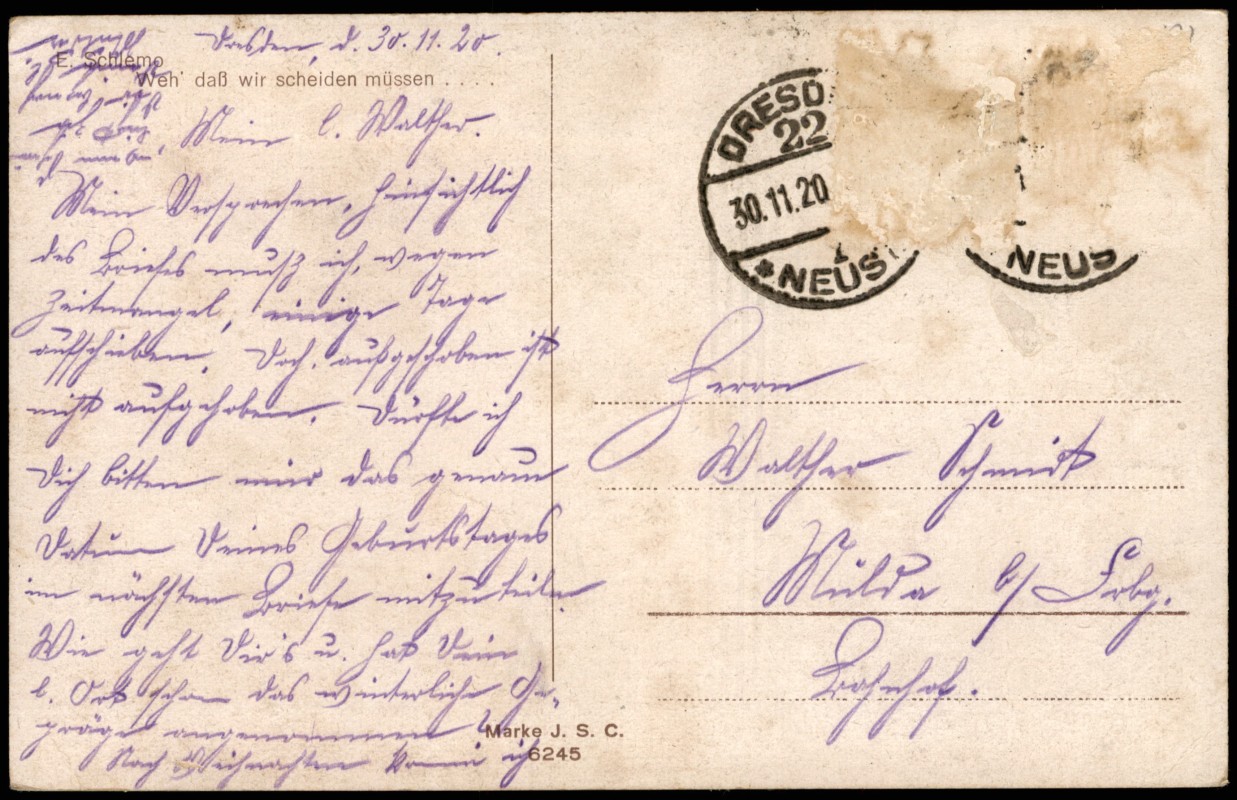 Dresden, d. 30.11.20.
E. Schlemo
Weh' daß wir scheiden müssen . . . . .
Mein l. Walther.
Mein Versprechen, hinsichtlich
des Briefes muß ich, wegen
Zeitmangel, einige Tage
aufschieben. Doch, aufgeschoben ist
nicht aufgehoben. Dürfte ich
Dich bitten mir das genaue
Datum Deines Geburtstages
im nächsten Briefe mitzuteilen.
Wie geht Dir's u. hat Dein
l. Ort schon das winterliche Ge-
präge angenommen?
Nach Weihnachten komme ich
Marke J. S. C.
6245
DRESD
22
30.11.20
1
*NEUST
NEUS
Herrn
Walther Schmidt
Mulda b/ Frbg.
Bahnhof.